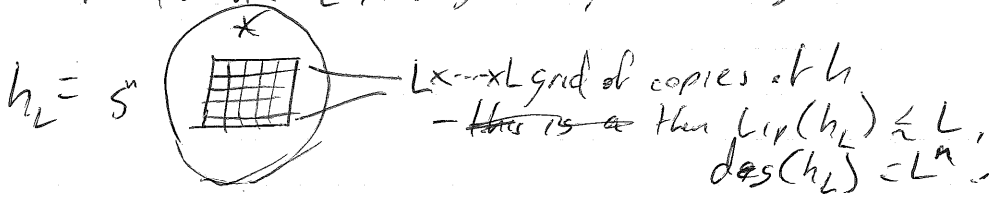 *
h_L = S^n
L×···×L grid of copies of h
- this is a then Lip(h_L) ≲ L,
deg(h_L) = L^n.